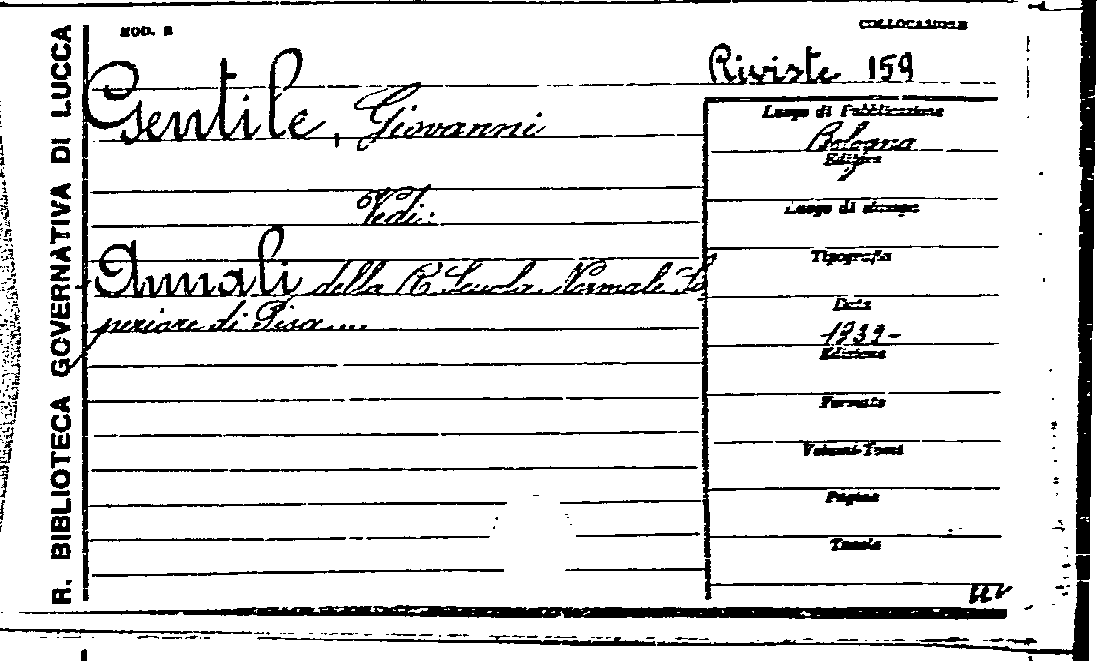 MOD. B
COLLOCAZIONE
R. BIBLIOTECA GOVERNATIVA DI LUCCA
Riviste 159
Gentile, Giovanni
Vedi:
Annali della R. Scuola Normale Su
periore di Pisa....
Luogo di Pubblicazione
Bologna
Editore
Luogo di stampa
Tipografia
Data
1939-
Edizione
Formato
Volumi-Tomi
Pagine
Tavole